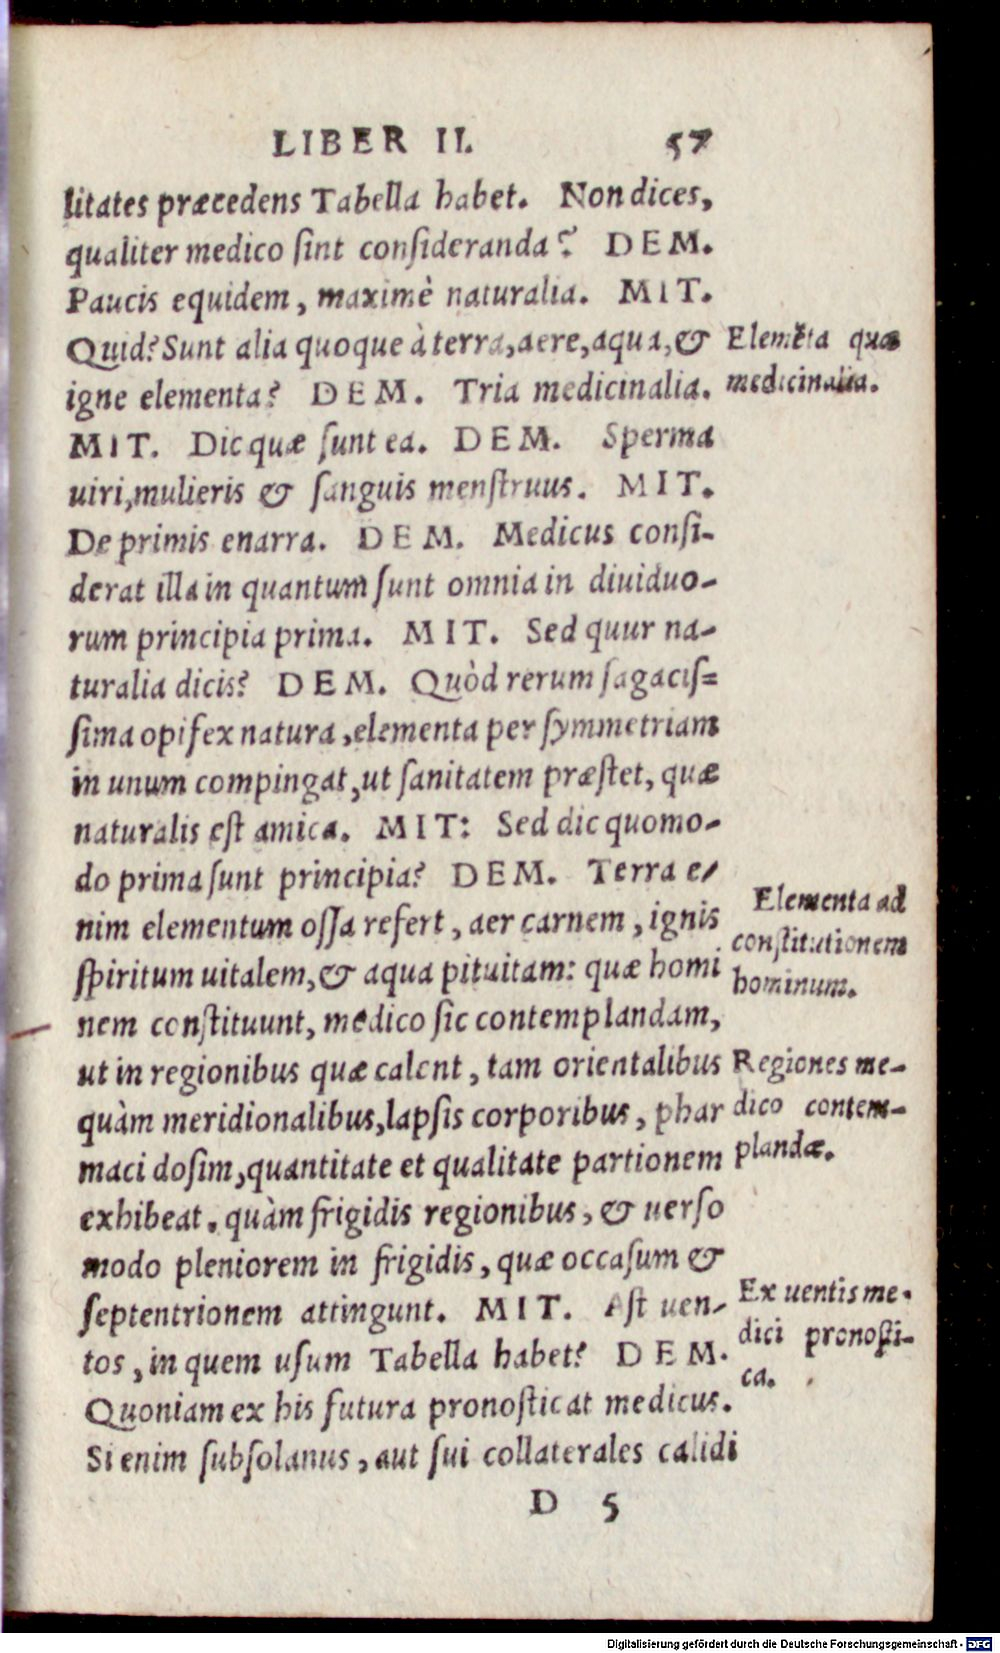 LIBER II. 57
litates præcedens Tabella habet. Non dices,
qualiter medico ſint conſideranda? DEM.
Paucis equidem, maximè naturalia. MIT.
Quid? Sunt alia quoque à terra, aere, aqua, &
igne elementa? DEM. Tria medicinalia.
MIT. Dic quæ ſunt ea. DEM. Sperma
uiri, mulieris & ſanguis menſtruus. MIT.
De primis enarra. DEM. Medicus conſi-
derat illa in quantum ſunt omnia in diuiduo-
rum principia prima. MIT. Sed quur na-
turalia dicis? DEM. Quòd rerum ſagaciſ=
ſima opifex natura, elementa per ſymmetriam
in unum compingat, ut ſanitatem præſtet, quæ
naturalis eſt amica. MIT: Sed dic quomo-
do prima ſunt principia? DEM. Terra e-
nim elementum oſſa refert, aer carnem, ignis
ſpiritum uitalem, & aqua pituitam: quæ homi
nem conſtituunt, medico ſic contemplandam,
ut in regionibus quæ calent, tam orientalibus
quàm meridionalibus, lapſis corporibus, phar
maci doſim, quantitate et qualitate partionem
exhibeat. quàm frigidis regionibus, & uerſo
modo pleniorem in frigidis, quæ occaſum &
ſeptentrionem attingunt. MIT. Aſt uen-
tos, in quem uſum Tabella habet? DEM.
Quoniam ex his futura pronoſticat medicus.
Si enim ſubſolanus, aut ſui collaterales calidi
D 5
Elemẽta quæ
medicinalia.
Elementa ad
conſtitutionem
hominum.
Regiones me-
dico contem-
plandæ.
Ex uentis me-
dici pronoſti-
ca.
Digitalisierung gefördert durch die Deutsche Forschungsgemeinschaft - DFG